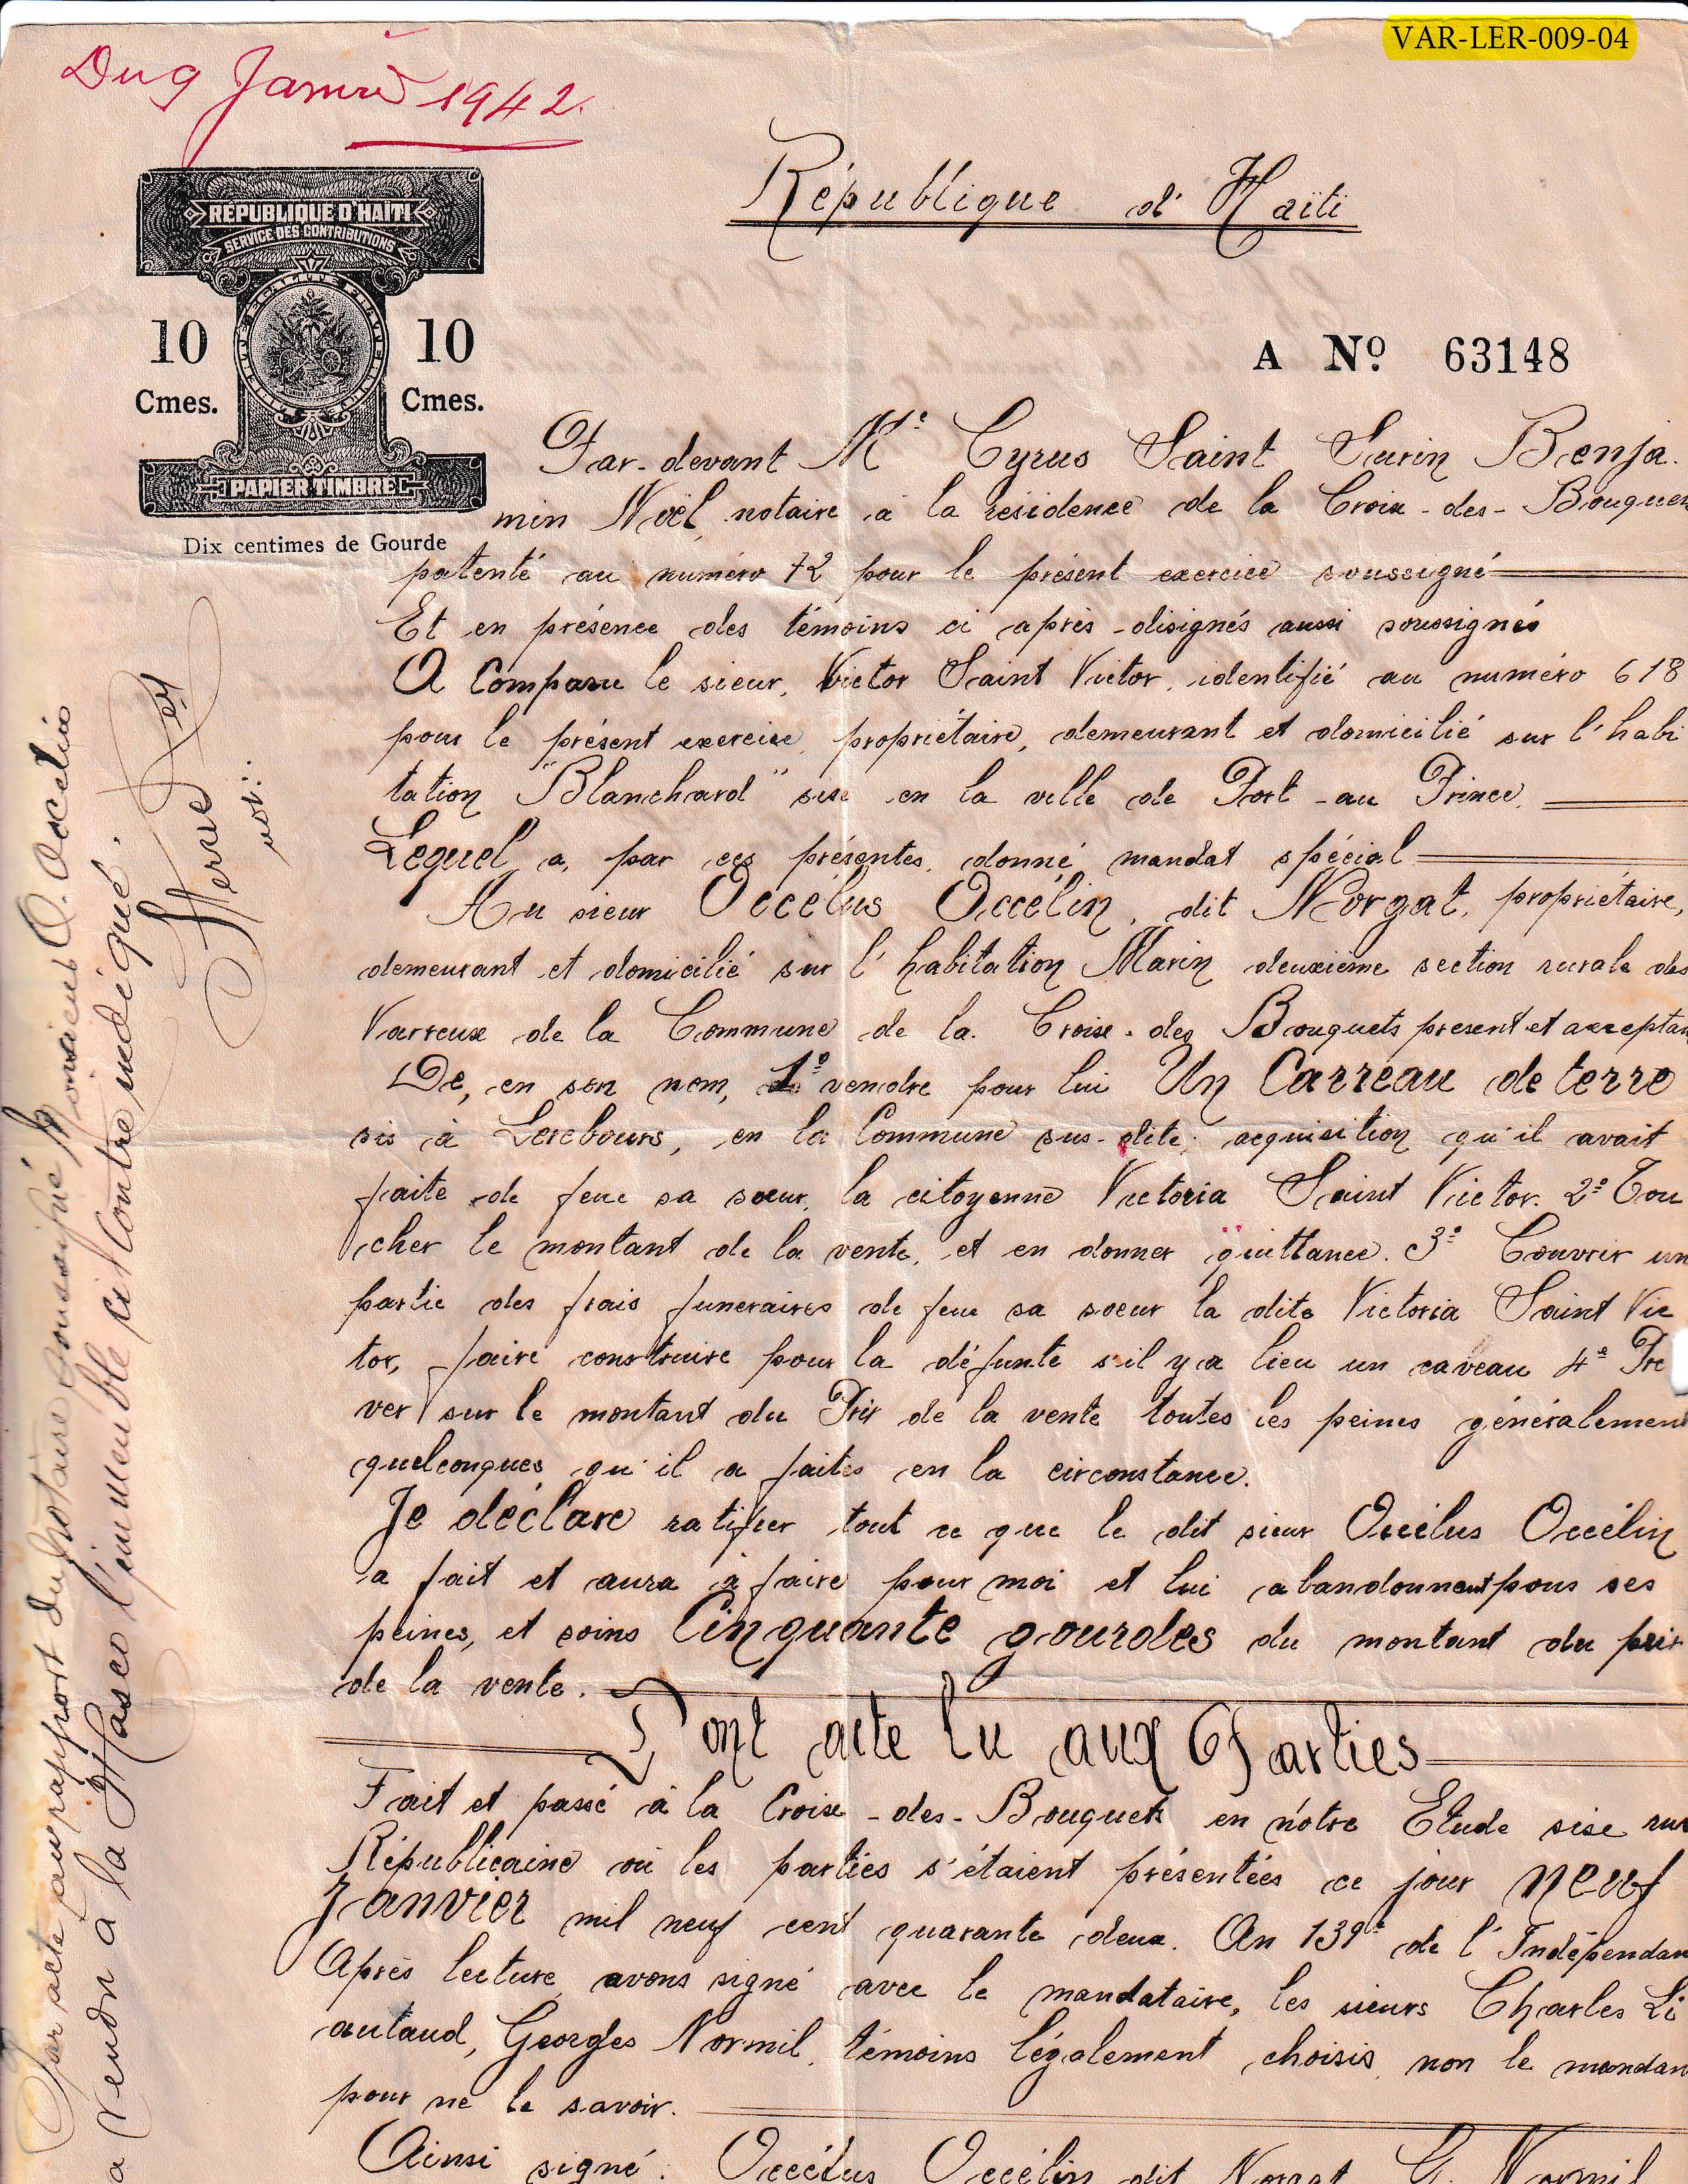 VAR-LER-009-04
Du 9 Janvier 1942.
République d'Haïti
RÉPUBLIQUE D'HAÏTI
SERVICE DES CONTRIBUTIONS
10 10
Cmes. Cmes.
PAPIER TIMBRÉ
Dix centimes de Gourde
A Nº 63148
Par-devant Me Cyrus Saint Surin Benja-
min Noël, notaire à la résidence de la Croix-des-Bouquets
patenté au numéro 72 pour le présent exercice soussigné
Et en présence des témoins ci après-disignés aussi soussignés
A Comparu le sieur, Victor Saint Victor, identifié au numéro 618
pour le présent exercice, propriétaire, demeurant et domicilié sur l'habi
tation "Blanchard" sise en la ville de Port-au Prince.
Lequel a, par ces présentes, donné mandat spécial
Au sieur Occélus Occélin, dit Norgat, propriétaire,
demeurant et domicilié sur l'habitation Marin deuxième section rurale des
Varreux de la Commune de la Croix-des Bouquets présent et acceptan
De, en son nom, 1º vendre pour lui Un Carreau de terre
sis à Lerebours, en la Commune sus-dite, acquisition qu'il avait
faite de feue sa soeur, la citoyenne Victoria Saint Victor. 2º Tou
cher le montant de la vente, et en donner quittance. 3º Couvrir un
partie des frais funeraires de feue sa soeur la dite Victoria Saint Vic
tor, faire construire pour la défunte s'il y a lieu un caveau 4º Pre
ver sur le montant du Prix de la vente toutes les peines généralement
quelconques qu'il a faites en la circonstance.
Je déclare ratifier tout ce que le dit sieur Occélus Occélin
a fait et aura à faire pour moi et lui abandonnent pour ses
peines, et soins Cinquante gourdes du montant du prix
de la vente.
Dont acte lu aux Parties
Fait et passé à la Croix-des-Bouquets en nôtre Etude sise rue
Républicaine où les parties s'étaient présentées ce jour neuf
Janvier mil neuf cent quarante deux. An 139e de l'Indépendan
Après lecture, avons signé avec le mandataire, les sieurs Charles Li
autaud, Georges Normil, témoins légalement choisis, non le mandan
pour ne le savoir.
Ainsi signé: Occélus Occélin dit Norgat, G. Normil
Par acte au rapport du Notaire soussigné Monsieur O. Occélin
a vendu à la Hasco l'immeuble ci contre indiqué.
not:.